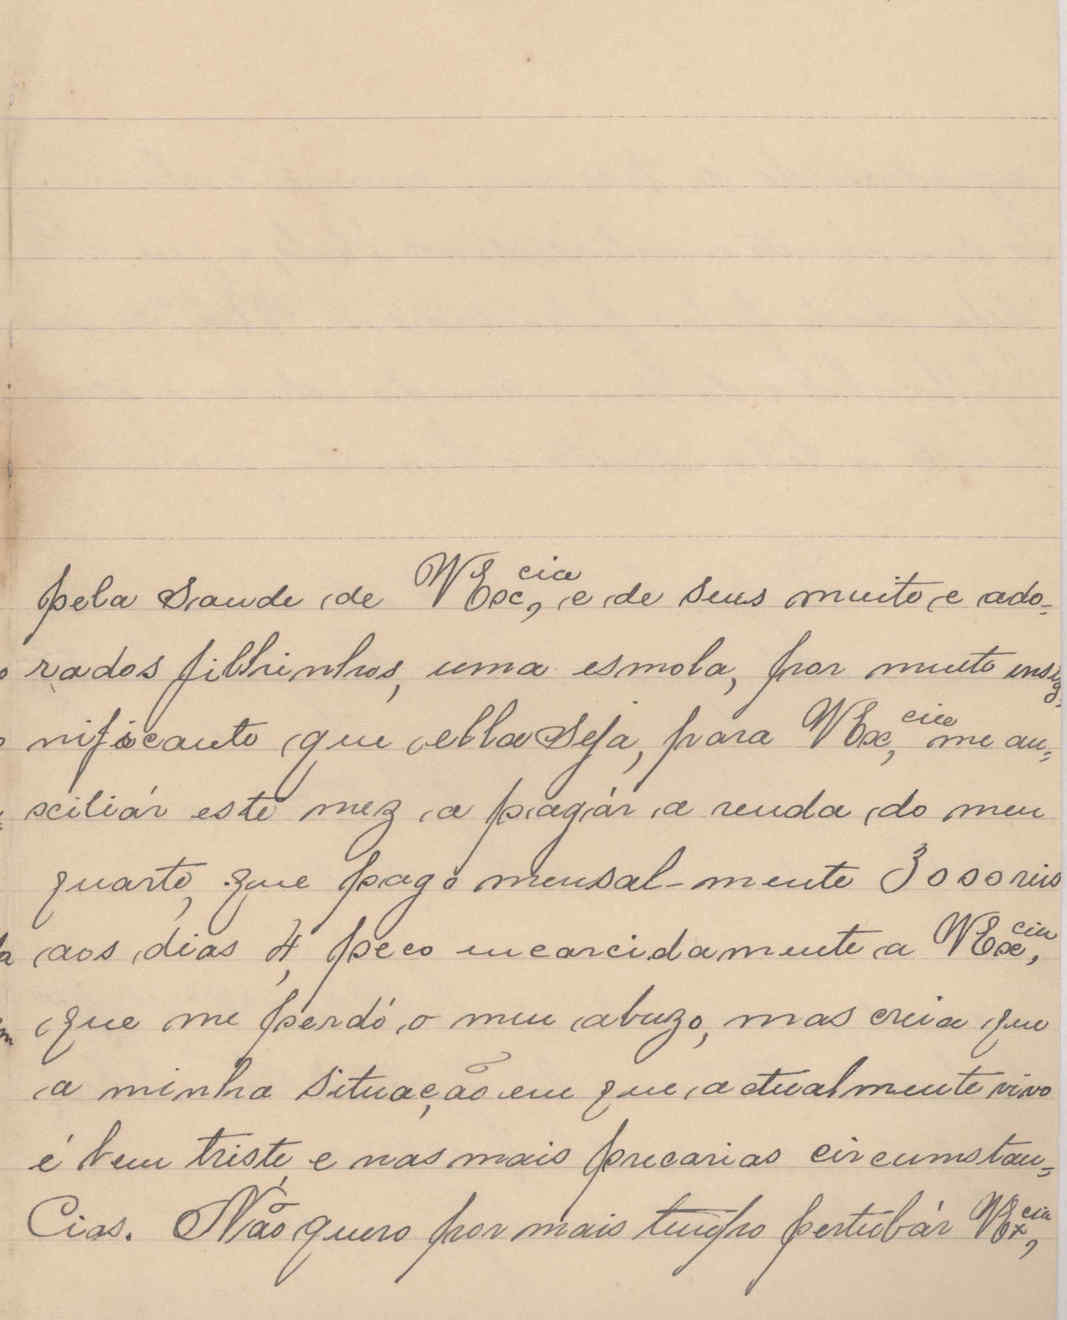 pela Saude de VExc,cia e de seus muito e ado=
rados filhinhos, uma esmola, por muito insig=
nificante que ella Seja, para VExc,cia me au=
xciliár este mez a pagár a renda do meu
quarto, que pago mensal-mente 3000 reis
aos dias 4, peco incarcidamente a VExc,cia
que me perdó o meu abuzo, mas creia que
a minha Situação em que actualmente vivo
é bem triste, e nas mais precarias circumstan=
Cias. Não quero por mais tempo pertubár VEx,cia